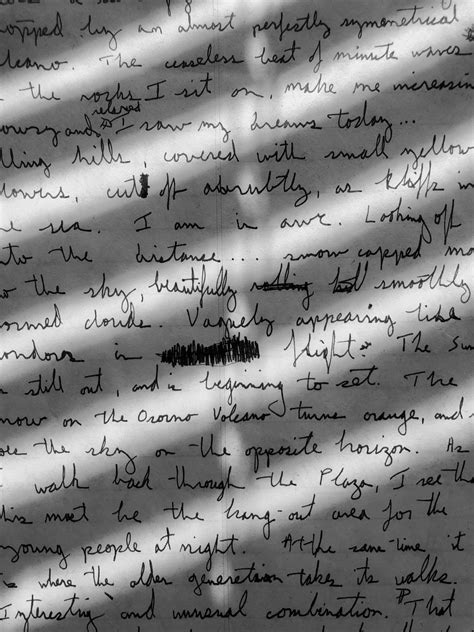 by an almost perfectly symmetrical
The ceaseless beat of minute waves
the rocks I sit on, make me
relaxed
and I saw my dreams today...
hills, covered with small yellow
cut off abruptly, as
sea. I am in awe. Looking off
the distance... snow capped
the sky, beautifully smoothly
clouds. Vaguely appearing like
in flight. The Sun
still out, and beginning to set. The
on the Osorno Volcano turns orange, and
the sky on the opposite horizon. As
walk back through the Plaza, I see
this must be the hang-out area for the
young people at night. At the same time, it
where the older generation takes its walks.
Interesting and unusual combination. That